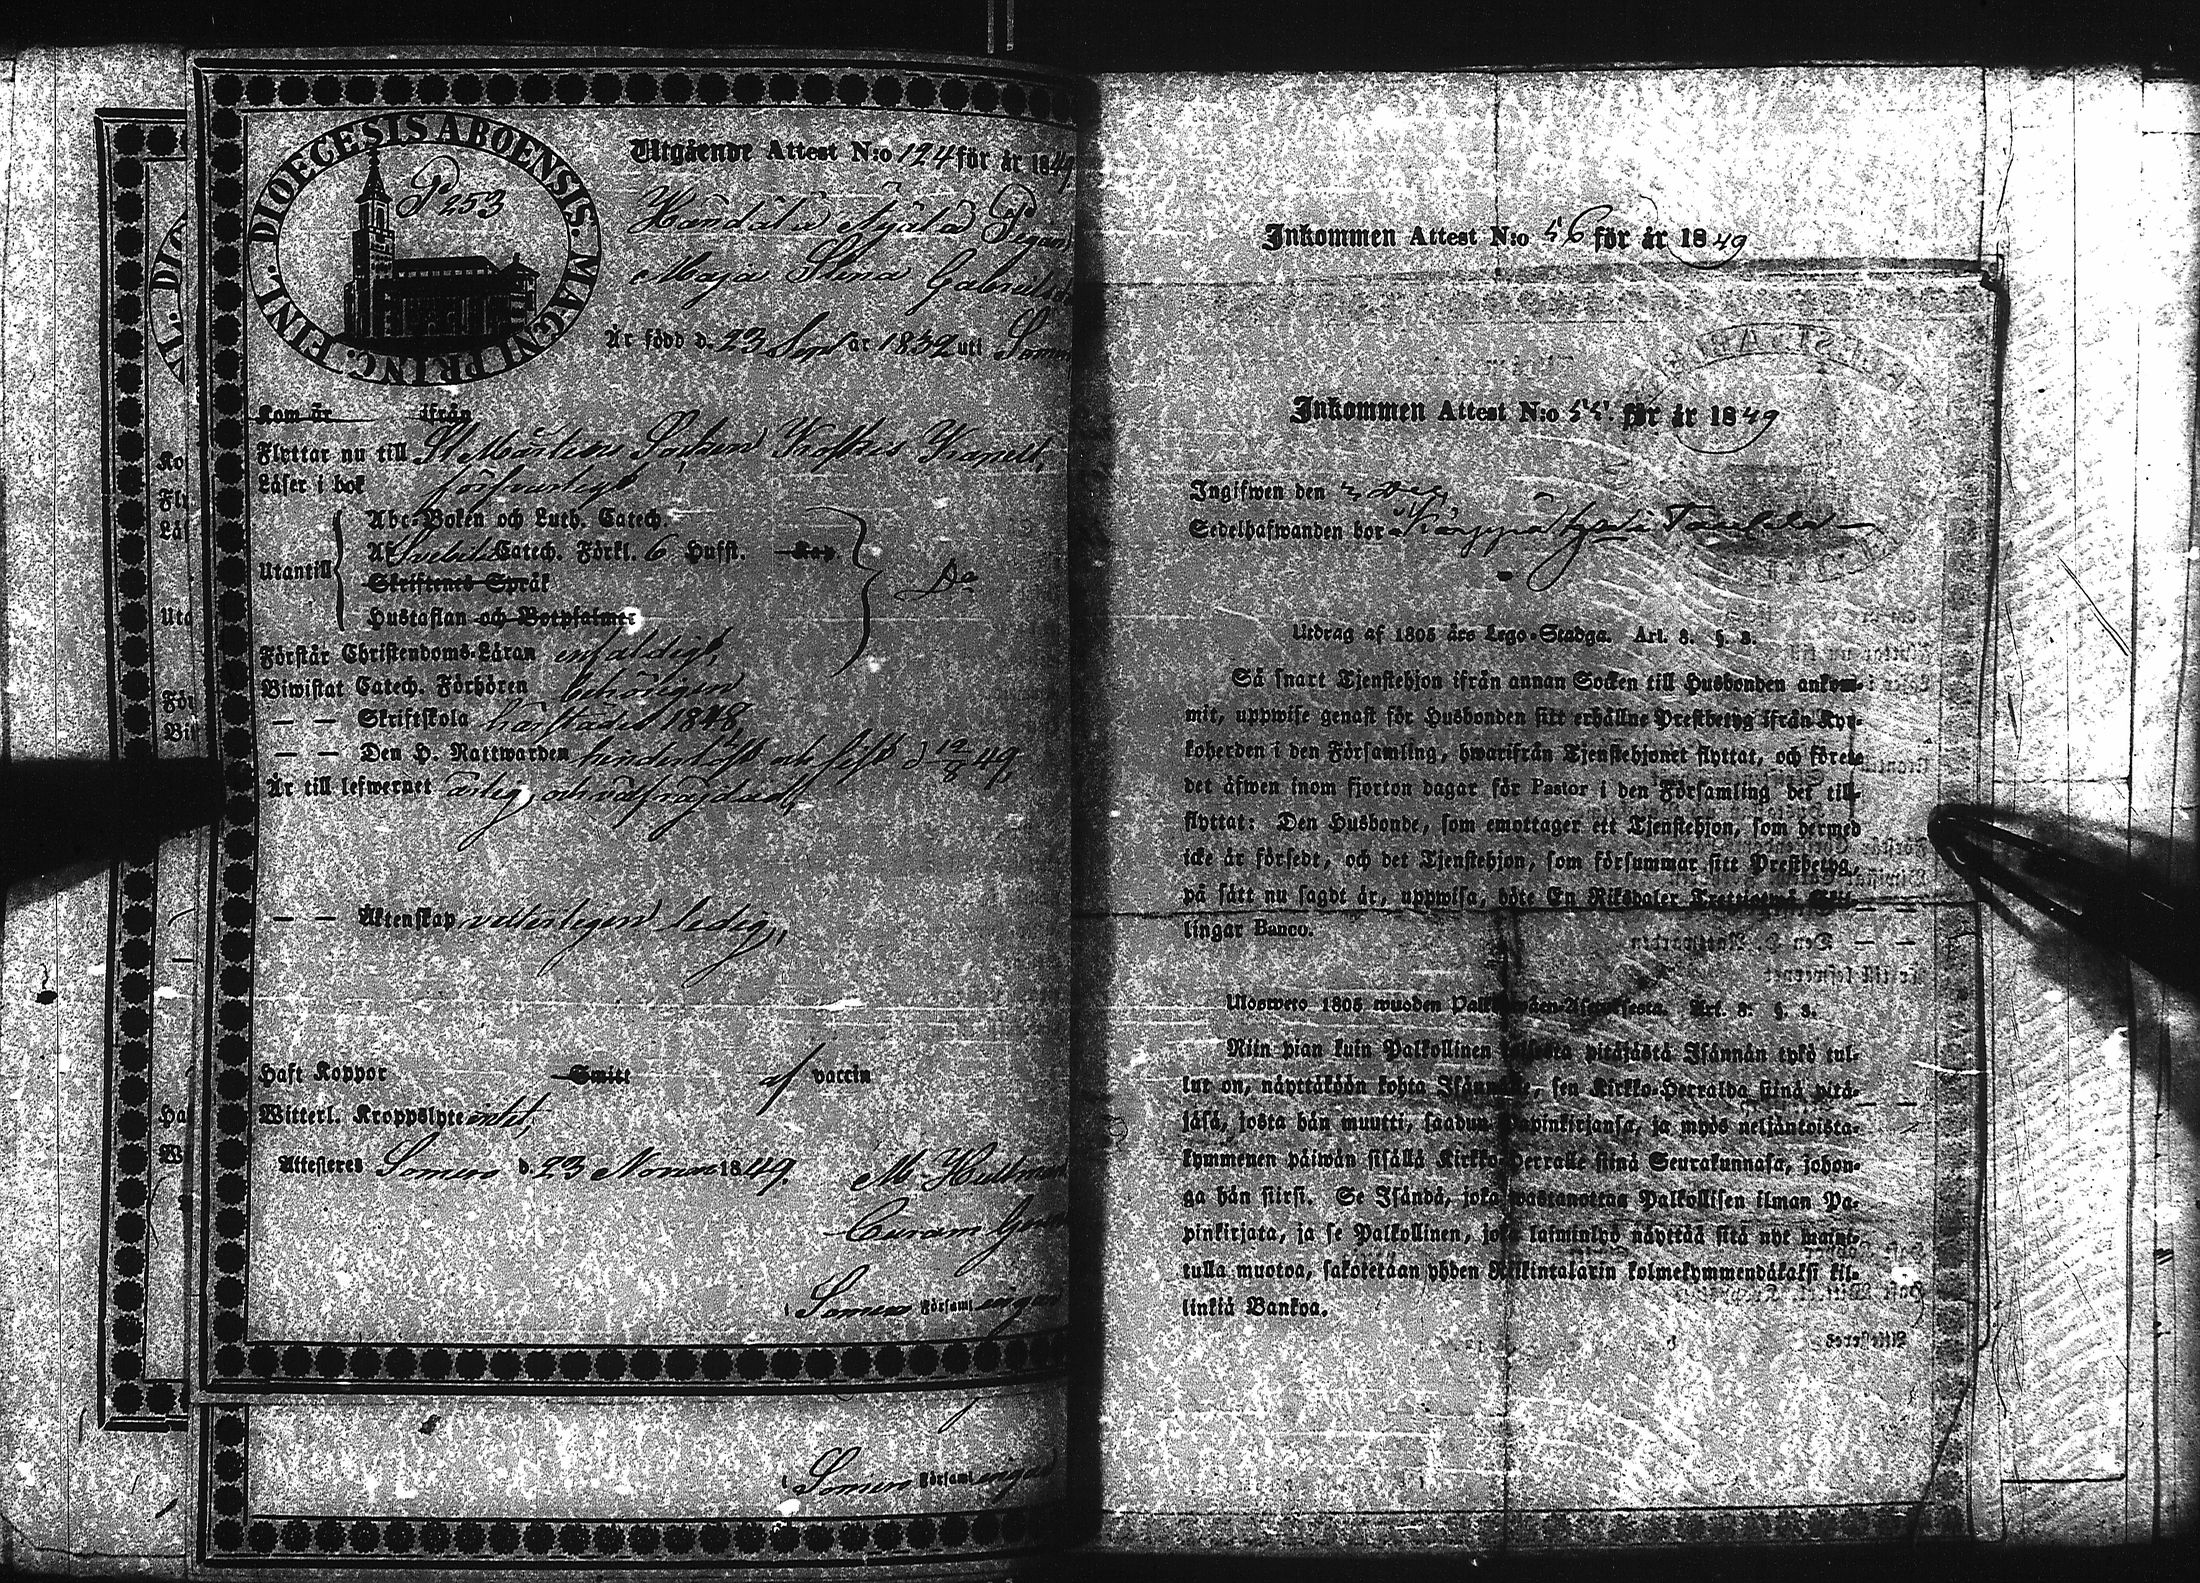 DIOECESIS ABOENSIS. MAGNI PRINC. FINL.
P 253
Utgående Attest N:o 124 för år 1849
Pigan
Maja Stina Gabriels
Är född d. 23 Sept år 1832 uti Somer
Kom år ifrån
Flyttar nu till St Mårtens Socken Koskis Kapell,
Läser i bok försvarligt
Utantill
Abc-Boken och Luth. Catech.
Af Svebilii Catech. Förkl. 6 Hufst. Kap.
Skriftenes Språk
Hustaflan och Botpsalmer
Do
Förstår Christendoms-Läran enfaldigt,
Biwistat Catech. Förhören behörigen
— — Skriftskola härstädes 1848,
— — Den H. Nattwarden hinderlöst och sist d 12/8 49,
Är till lefwernet ärlig och välfräjdad,
— — Äktenskap vitterligen ledig,
Haft Koppor Smitt af vaccin
Witterl. Kroppslyte intet,
Attesteras Somero d. 23 Novem 1849.
M Hultm
Curam
i Somero Församl ingar
i Somero Församl ingar
Inkommen Attest N:o 56 för år 1849
Inkommen Attest N:o 55. för år 1849
Ingifwen den 2 Dec,
Sedelhafwanden bor
Utdrag af 1805 års Lego-Stadga. Art. 3. §. 3.
Så snart Tjenstehjon ifrån annan Socken till Husbonden ankom-
mit, uppwise genast för Husbonden sitt erhållne Prestbetyg ifrån Kyr-
koherden i den Församling, hwarifrån Tjenstehjonet flyttat, och förete
det äfwen inom fjorton dagar för Pastor i den Församling det till-
flyttat: Den Husbonde, som emottager ett Tjenstehjon, som dermed
icke är försedt, och det Tjenstehjon, som försummar sitt Prestbetyg,
på sätt nu sagdt är, uppwisa, böte En Riksdaler Trettiotwå Skil-
lingar Banco.
Ulosweto 1805 wuoden Palkollisten-Asetuksesta. Art. 3. §. 3.
Niin pian kuin Palkollinen toisesta pitäjästä Isännän tykö tul-
lut on, näyttäköön kohta Isännälle, sen Kirkko-Herralda siinä pitä-
jäsä, josta hän muutti, saadun Papinkirjansa, ja myös neljäntoista-
kymmenen päiwän sisällä Kirkko-Herralle siinä Seurakunnasa, johon-
ga hän siirsi. Se Isändä, joka wastanottaa Palkollisen ilman Pa-
pinkirjata, ja se Palkollinen, joka laiminlyö näyttää sitä nyt maini-
tulla muotoa, sakotetaan yhden Riikintalarin kolmekymmendäkaksi kil-
linkiä Bankoa.